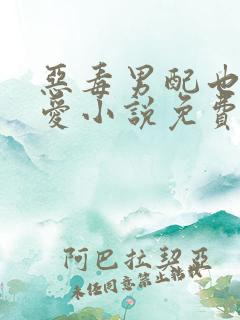 惡毒男配也
愛小說免費
阿巴拉契亞
未經同意禁止轉載